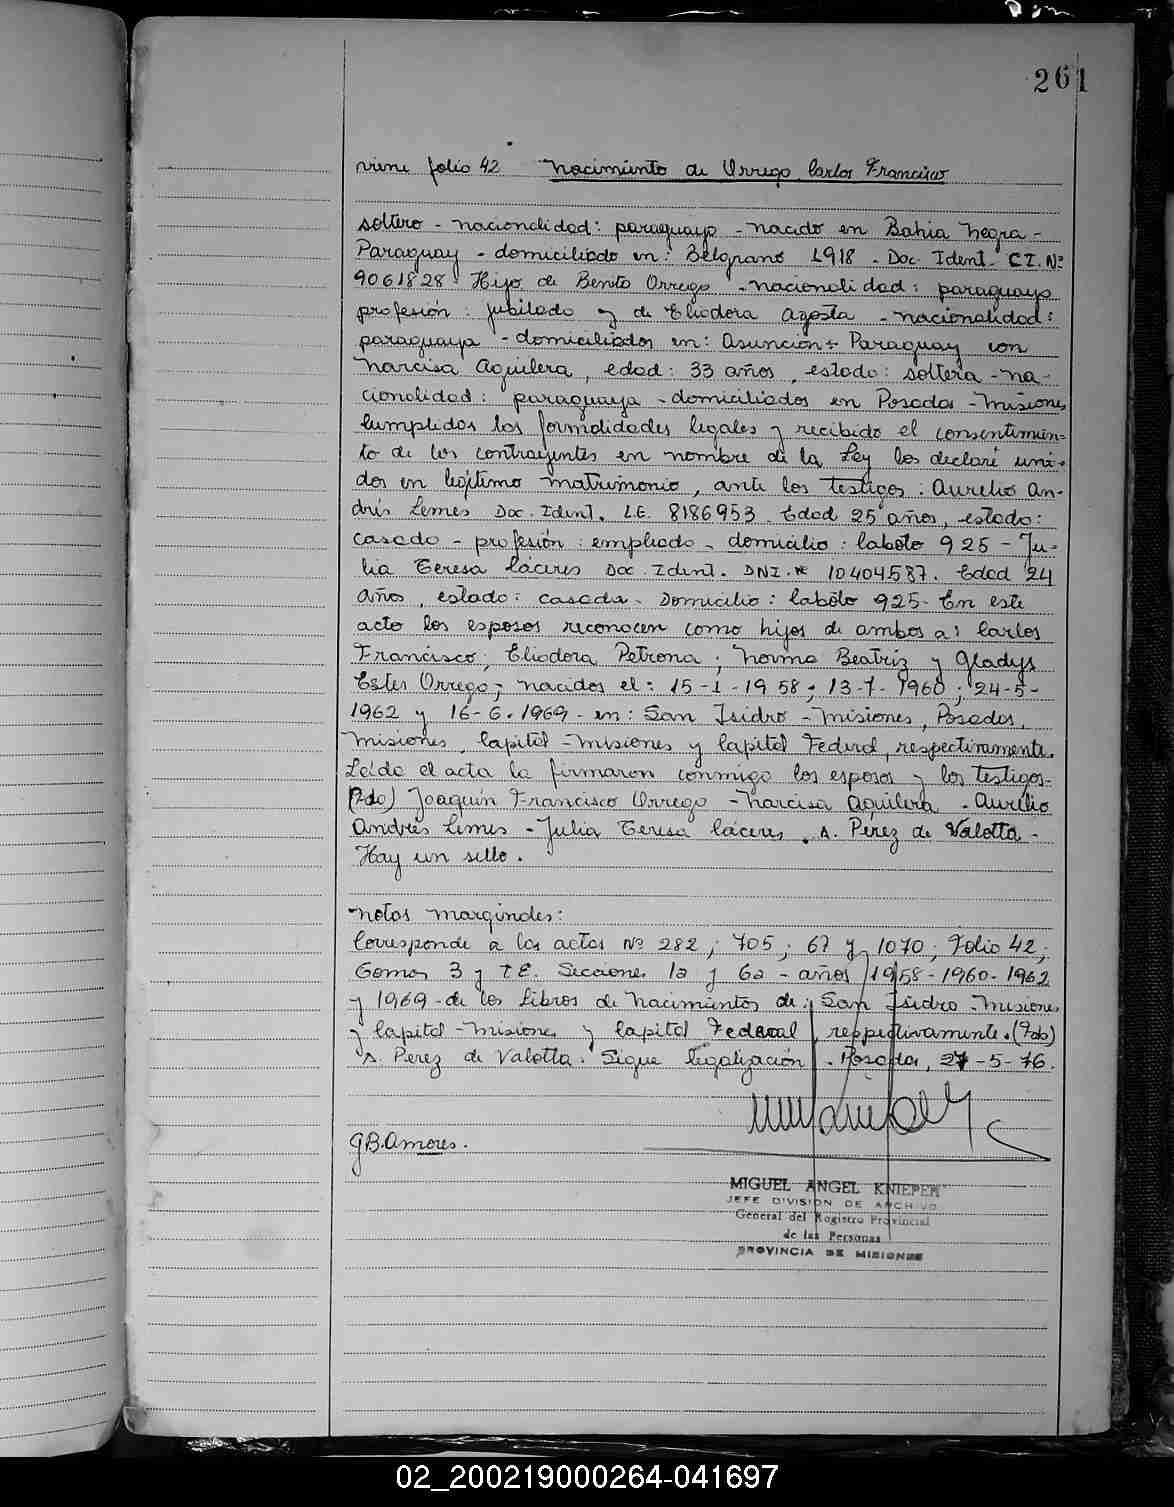 261
viene folio 42 Nacimiento de Orrego Carlos Francisco
soltero - nacionalidad: paraguayo - nacido en Bahia Negra -
Paraguay - domiciliado en: Belgrano 1918 - Doc. Ident. C.I. Nº
9061828. Hijo de Benito Orrego - nacionalidad: paraguayo
profesión: jubilado y de Eliodora Agosta - nacionalidad:
paraguaya - domiciliados en: Asunción - Paraguay con
Narcisa Aquilera, edad: 33 años, estado: soltera - na-
cionalidad: paraguaya - domiciliados en Posadas - Misiones
Cumplidas las formalidades legales y recibido el consentimien-
to de los contrayentes en nombre de la Ley los declaré uni-
dos en legítimo matrimonio, ante los testigos: Aurelio An-
drés Lemes Doc. Ident. L.E. 8186953. Edad 25 años, estado:
casado - profesión: empleado - domicilio: Caboto 925 - Ju-
lia Teresa Cáceres Doc. Ident. DNI. Nº 10404587. Edad 24
años, estado: casada. Domicilio: Caboto 925. En este
acto los esposos reconocen como hijos de ambos a: Carlos
Francisco; Eliodora Petrona; Norma Beatriz y Gladys
Ester Orrego; nacidos el: 15-1-1958; 13-7-1960; 24-5-
1962 y 16-6-1969 - en: San Isidro - Misiones, Posadas,
Misiones, Capital - Misiones y Capital Federal, respectivamente.
Leída el acta la firmaron conmigo los esposos y los testigos-
(Fdo) Joaquín Francisco Orrego - Narcisa Aquilera - Aurelio
Andrés Lemes - Julia Teresa Cáceres. A. Perez de Valotta -
Hay un sello.
Notas marginales:
Corresponde a las actas Nº 282; 705; 67 y 1070; Folio 42;
Tomos 3 y 7E. Secciones 1a y 6a - años 1958-1960-1962
y 1969 - de los Libros de Nacimientos de: San Isidro - Misiones
y Capital - Misiones y Capital Federal, respectivamente. (Fdo)
A. Perez de Valotta. Sigue legalización. Posadas, 27-5-76.
G.B. Amores.
MIGUEL ANGEL KNIEPER
JEFE DIVISION DE ARCHIVO
General del Registro Provincial
de las Personas
PROVINCIA DE MISIONES
02_200219000264-041697